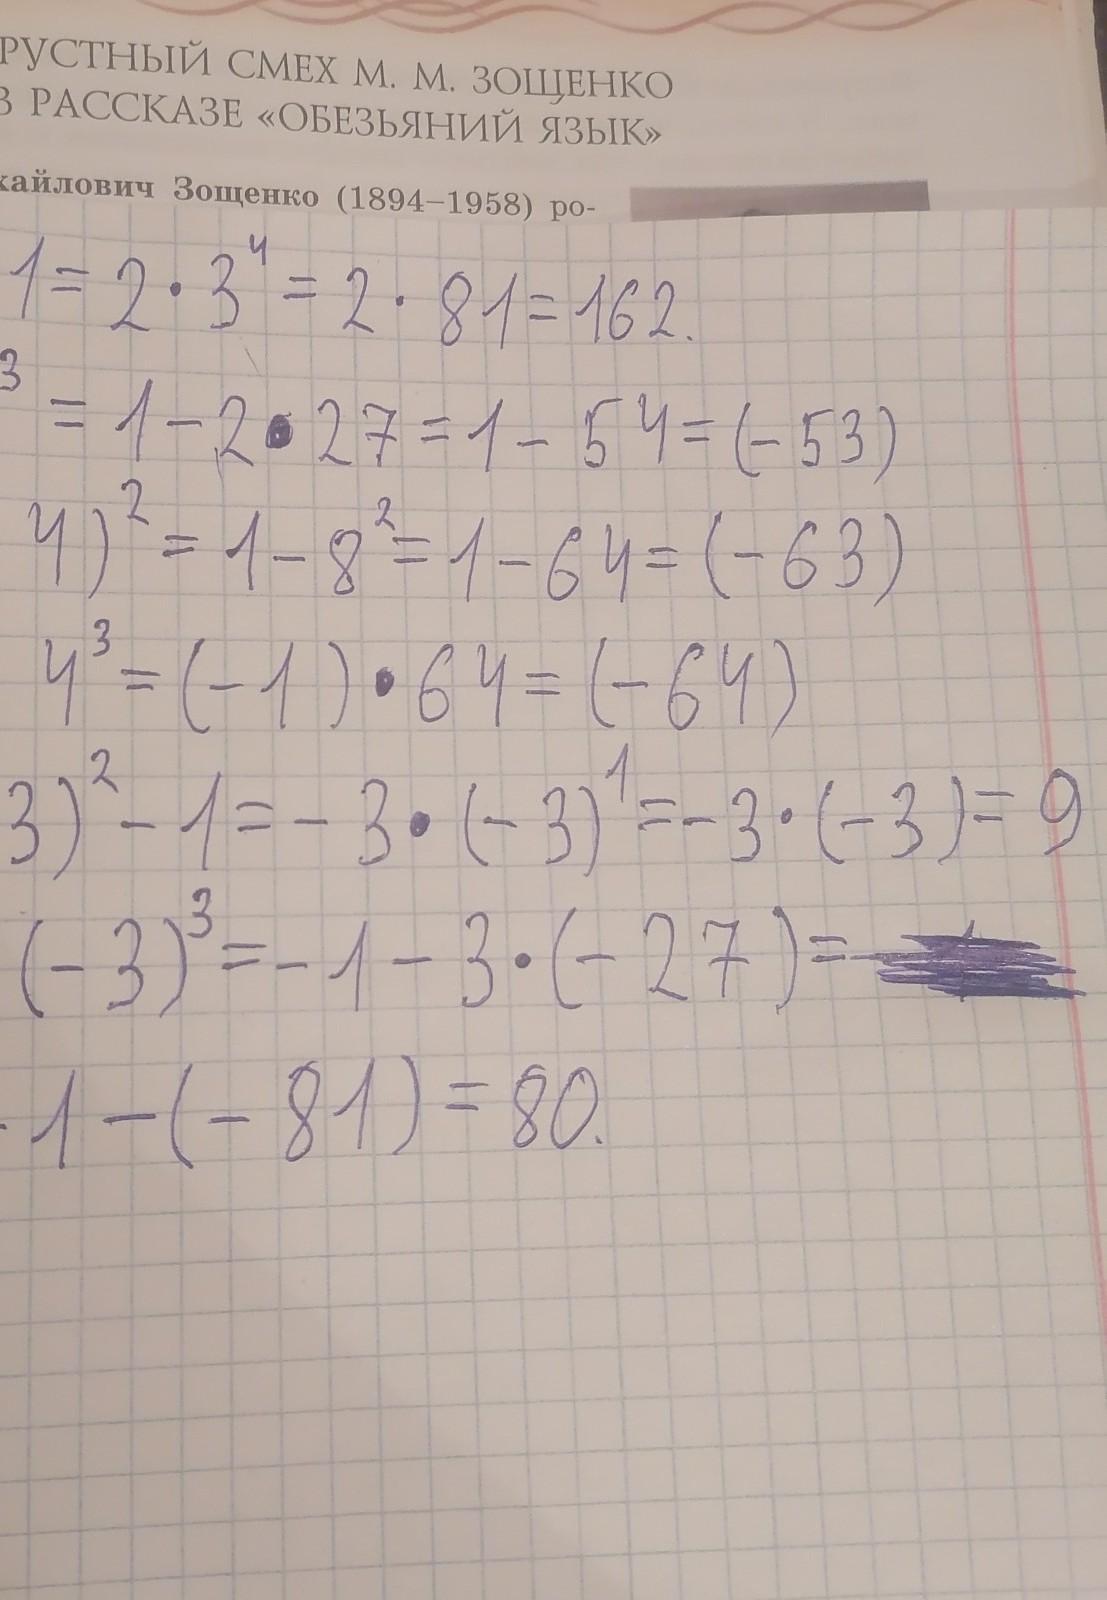 РУСТНЫЙ СМЕХ М. М. ЗОЩЕНКО
В РАССКАЗЕ «ОБЕЗЬЯНИЙ ЯЗЫК»
хайлович Зощенко (1894–1958) ро-
1 = 2 · 3⁴ = 2 · 81 = 162.
³ = 1 - 2 · 27 = 1 - 54 = (-53)
4)² = 1 - 8² = 1 - 64 = (-63)
4³ = (-1) · 64 = (-64)
3)² - 1 = -3 · (-3)¹ = -3 · (-3) = 9
(-3)³ = -1 - 3 · (-27) =
-1 - (-81) = 80.